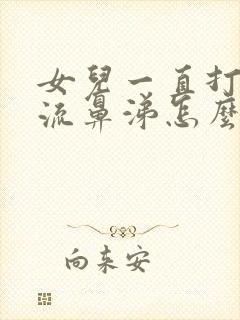 女兒一直打
流鼻涕怎麼
向未安